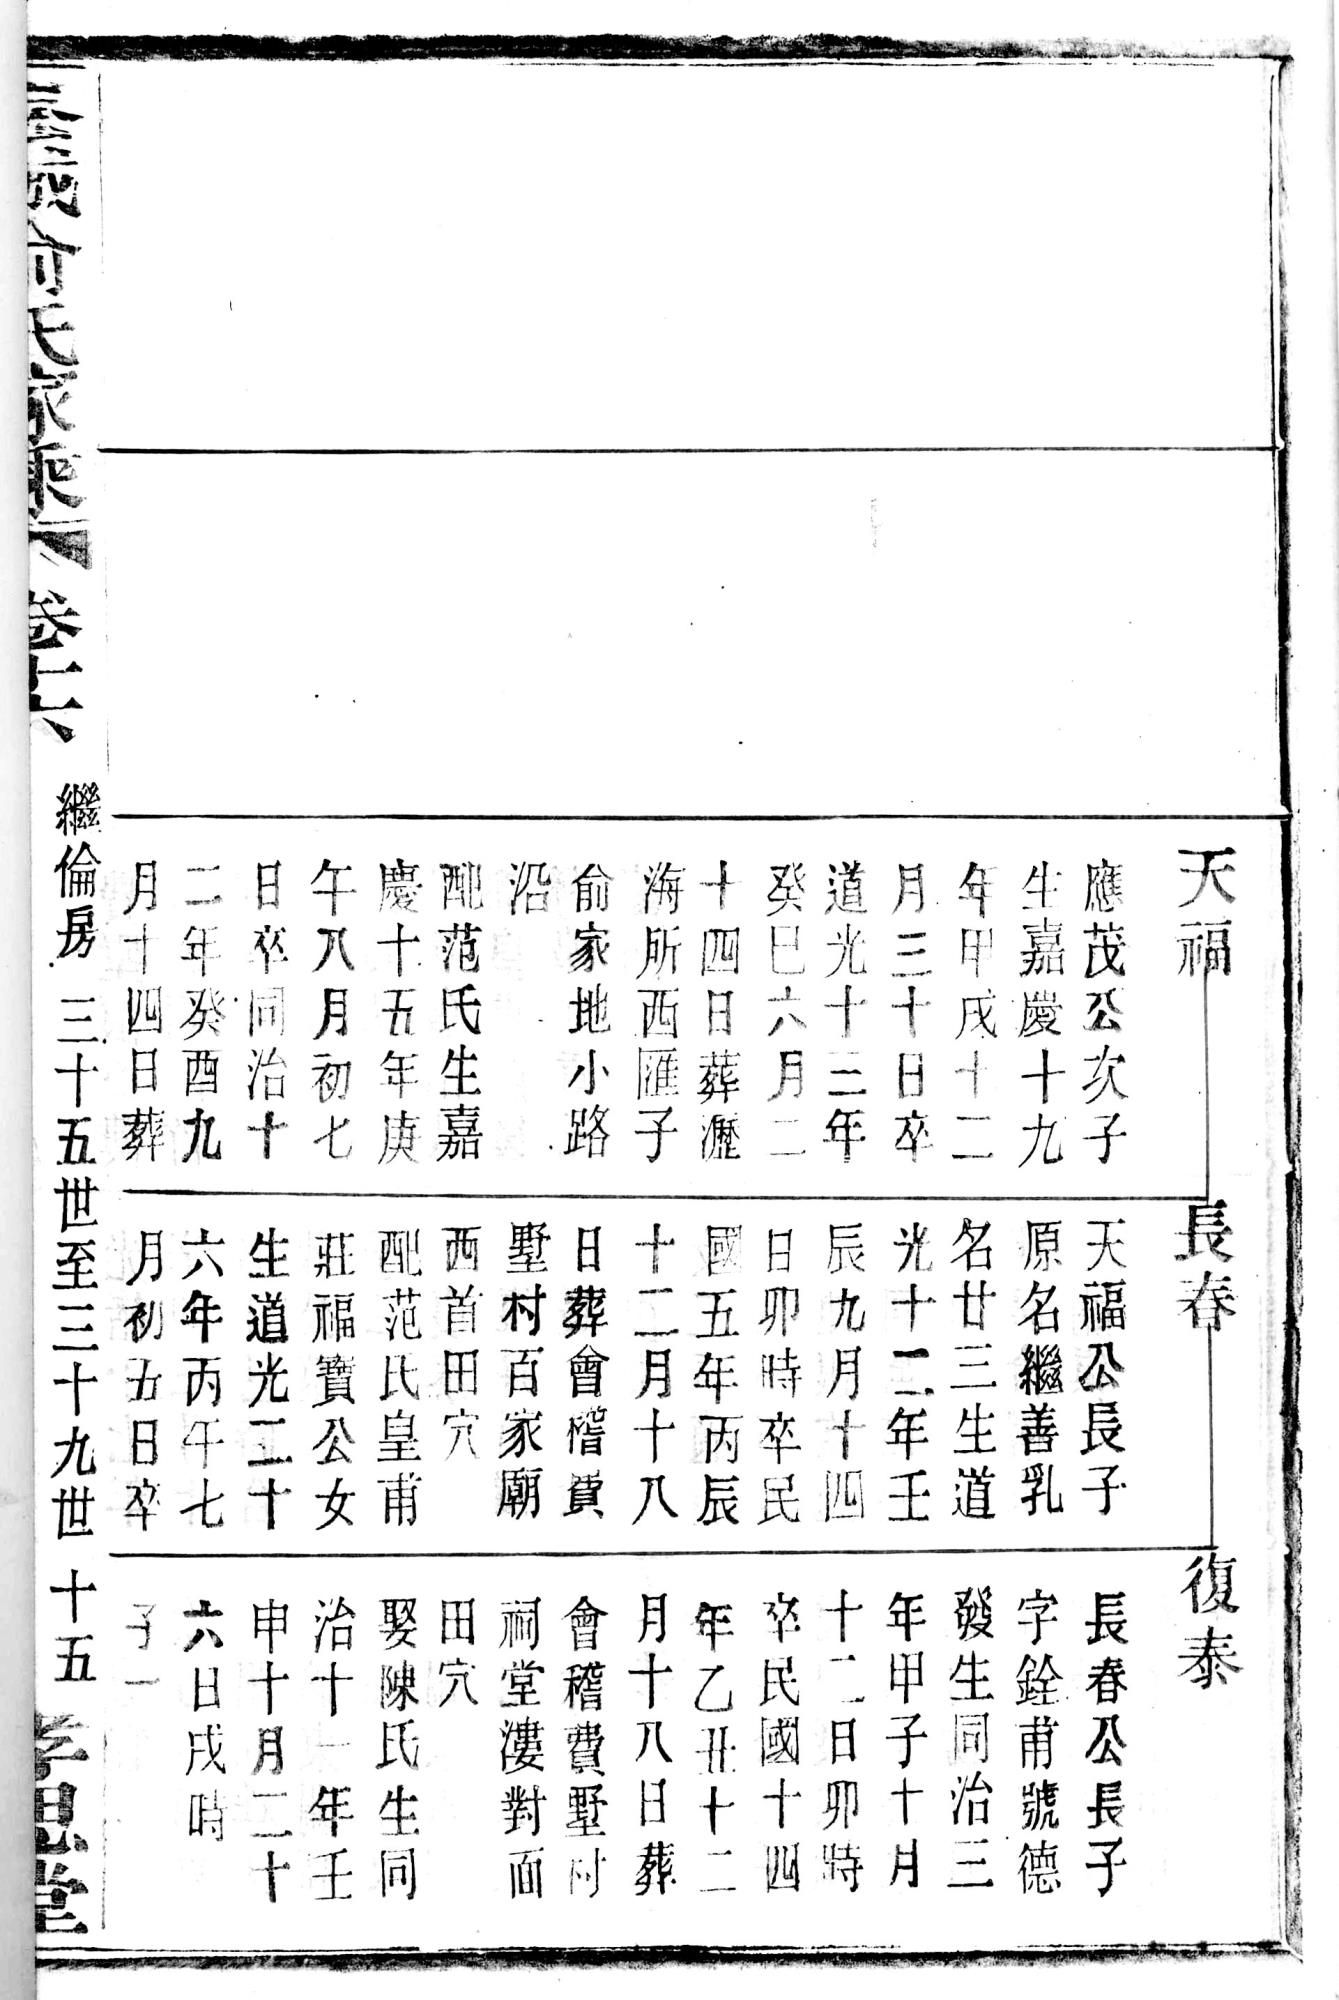 天福
應茂公次子
生嘉慶十九
年甲戌十二
月三十日卒
道光十三年
癸巳六月二
十四日葬瀝
海所西匯子
俞家地小路
沿
配范氏生嘉
慶十五年庚
午八月初七
日卒同治十
二年癸酉九
月十四日葬
長春
天福公長子
原名繼善乳
名廿三生道
光十二年壬
辰九月十四
日卯時卒民
國五年丙辰
十二月十八
日葬會稽費
墅村百家廟
西首田穴
配范氏皇甫
莊福寶公女
生道光二十
六年丙午七
月初五日卒
復泰
長春公長子
字銓甫號德
發生同治三
年甲子十月
十二日卯時
卒民國十四
年乙丑十二
月十八日葬
會稽費墅村
祠堂漊對面
田穴
娶陳氏生同
治十一年壬
申十月二十
六日戌時
子一
俞氏家乘 卷十六 繼倫房 三十五世至三十九世 十五 孝思堂